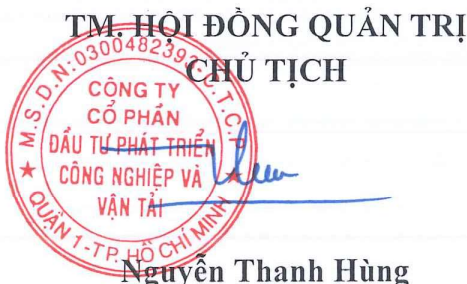 TM. HỘI ĐỒNG QUẢN TRỊ
CHỦ TỊCH
M.S.D.N:0300482393-C.T.C.P
CÔNG TY
CỔ PHẦN
ĐẦU TƯ PHÁT TRIỂN
CÔNG NGHIỆP VÀ
VẬN TẢI
QUẬN 1-TP. HỒ CHÍ MINH
Nguyễn Thanh Hùng